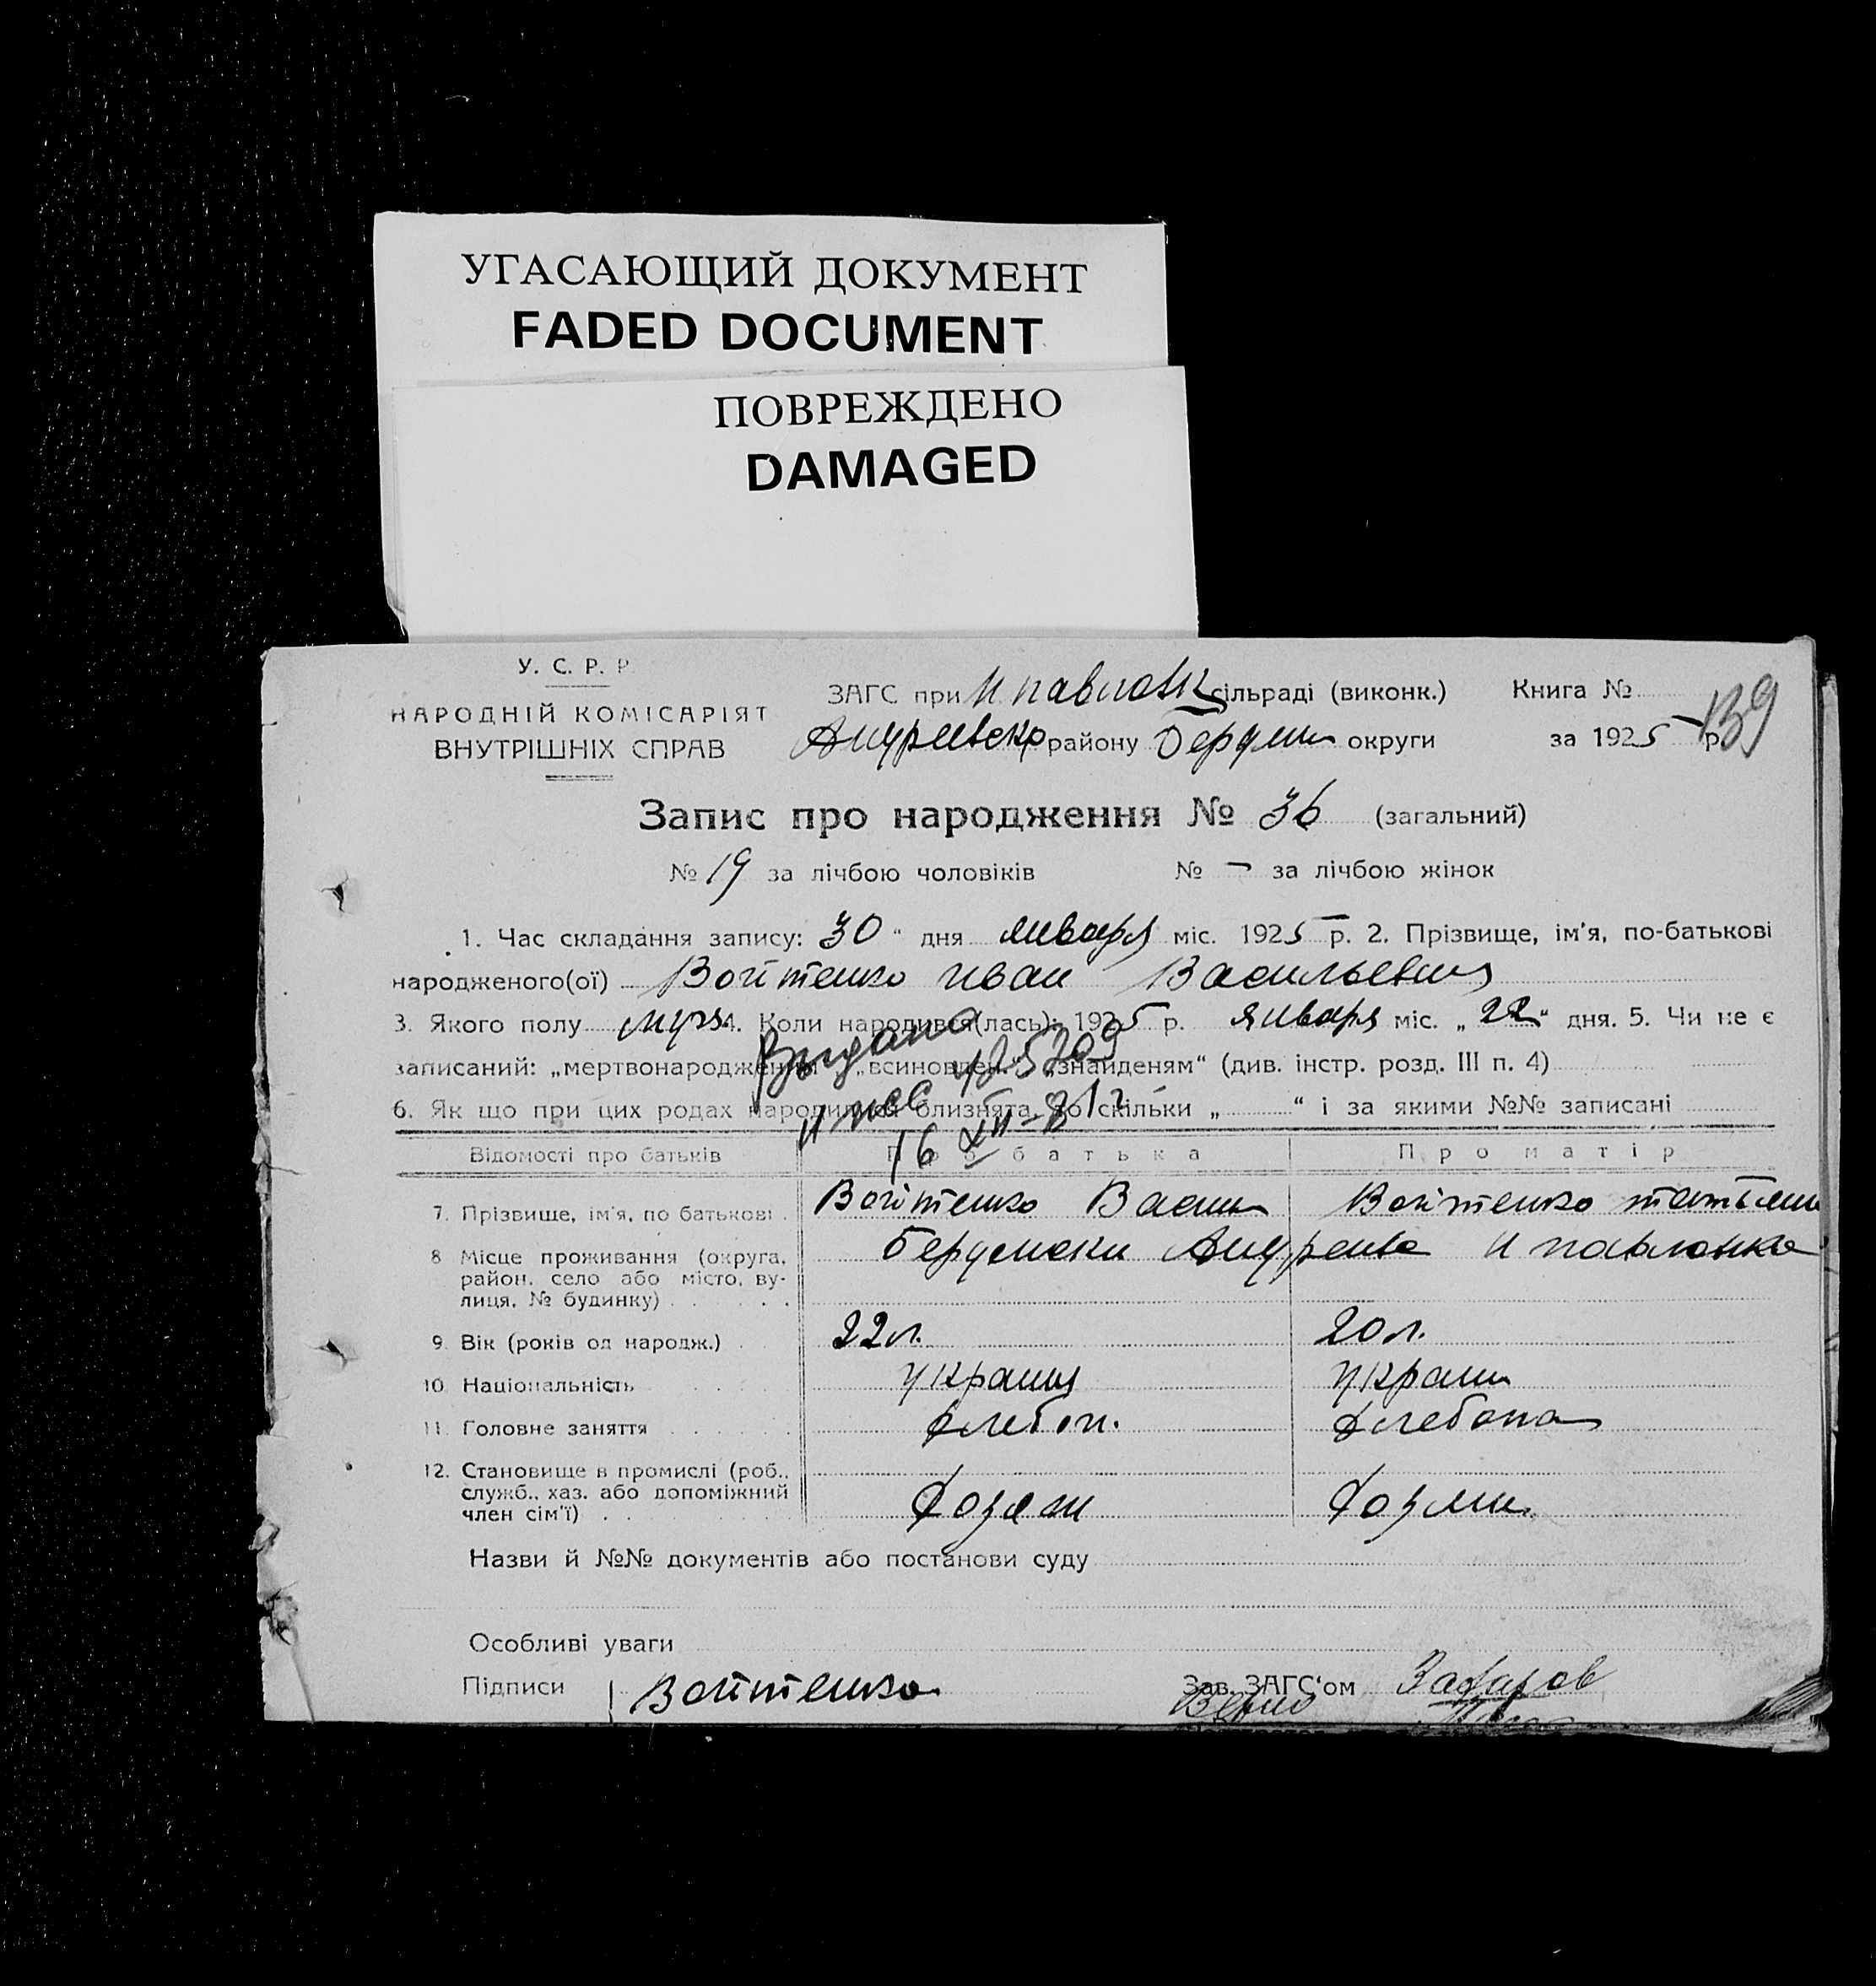 УГАСАЮЩИЙ ДОКУМЕНТ
FADED DOCUMENT
ПОВРЕЖДЕНО
DAMAGED
У. С. Р. Р
НАРОДНІЙ КОМІСАРІЯТ
ВНУТРІШНІХ СПРАВ
ЗАГС при Н павловк сільраді (виконк.)
Книга №
139
Андреевско району Бердян округи
за 1925 р.
Запис про народження № 36 (загальний)
№ 19 за лічбою чоловіків № – за лічбою жінок
1. Час складання запису: 30 “ дня января міс. 1925 р. 2. Прізвище, ім'я, по-батькові
народженого(ої) Войтенко Иван Васильевич
3. Якого полу муж. 4. Коли народився(лась): 1925 р. января міс. „ 22 “ дня. 5. Чи не є
записаний: „мертвонародженим“, „всиновлен.“, „знайденям“ (див. інстр. розд. III п. 4)
Выдано
425209
6. Як що при цих родах народилися близнята, то скільки „ “ і за якими №№ записані
16 XII
Відомості про батьків
Про батька
Про матір
7. Прізвище, ім'я, по батькові
Войтенко Васил
Войтенко татьян
8 Місце проживання (округа,
район, село або місто, ву-
лиця, № будинку)
Бердянски Андреев Н павловка
9. Вік (років од народж.)
22 л.
20 л.
10. Національність
Украин
Украин
11. Головне заняття
хлебоп.
хлебопа
12. Становище в промислі (роб.,
служб., хаз. або допоміжний
член сім'ї)
Хозяин
Хозяи
Назви й №№ документів або постанови суду
Особливі уваги
Підписи
Войтенко
Зав. ЗАГС'ом
Верно